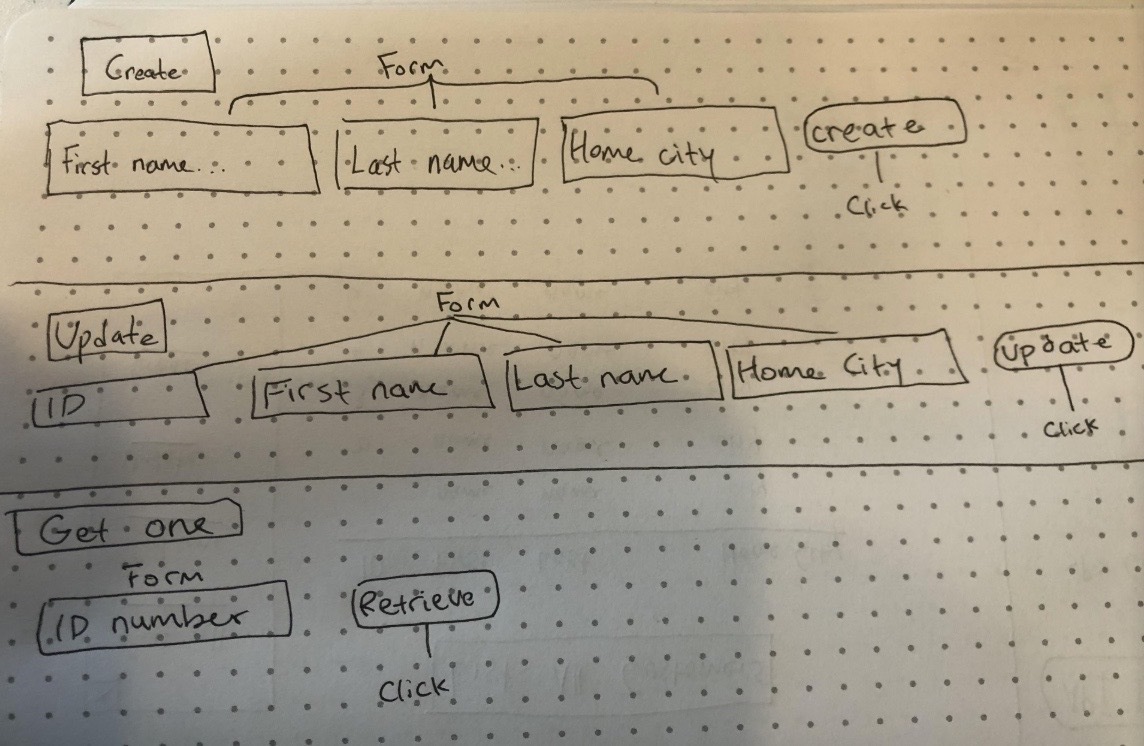 Create
Form
First name...
Last name...
Home city
create
Click
Form
Update
ID
First name
Last name.
Home City
update
Click
Get one
Form
ID number
Retrieve
Click